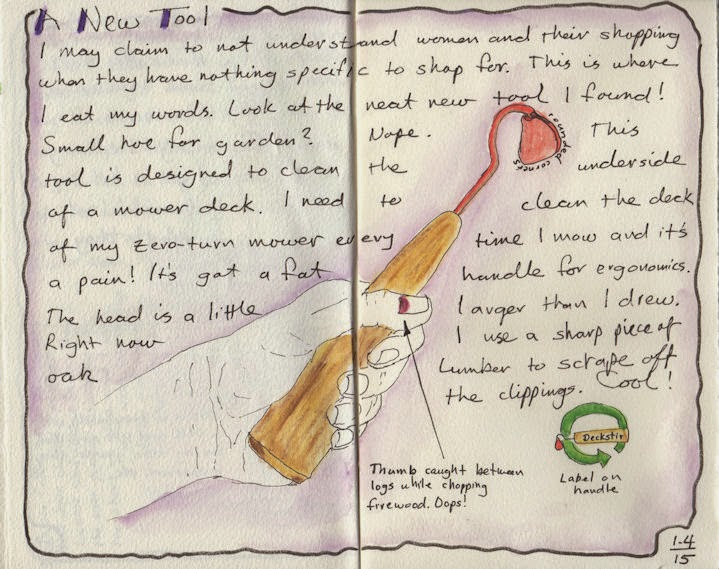 A New Tool
I may claim to not understand women and their shopping
when they have nothing specific to shop for. This is where
I eat my words. Look at the neat new tool I found!
Small hoe for garden? Nope. This
tool is designed to clean the underside
of a mower deck. I need to clean the deck
of my zero-turn mower every time I mow and it's
a pain! It's got a fat handle for ergonomics.
The head is a little larger than I drew.
Right now I use a sharp piece of
oak lumber to scrape off
the clippings. Cool!
rounded corners
Thumb caught between
logs while chopping
firewood. Oops!
Deckstir
Label on
handle
1-4
15